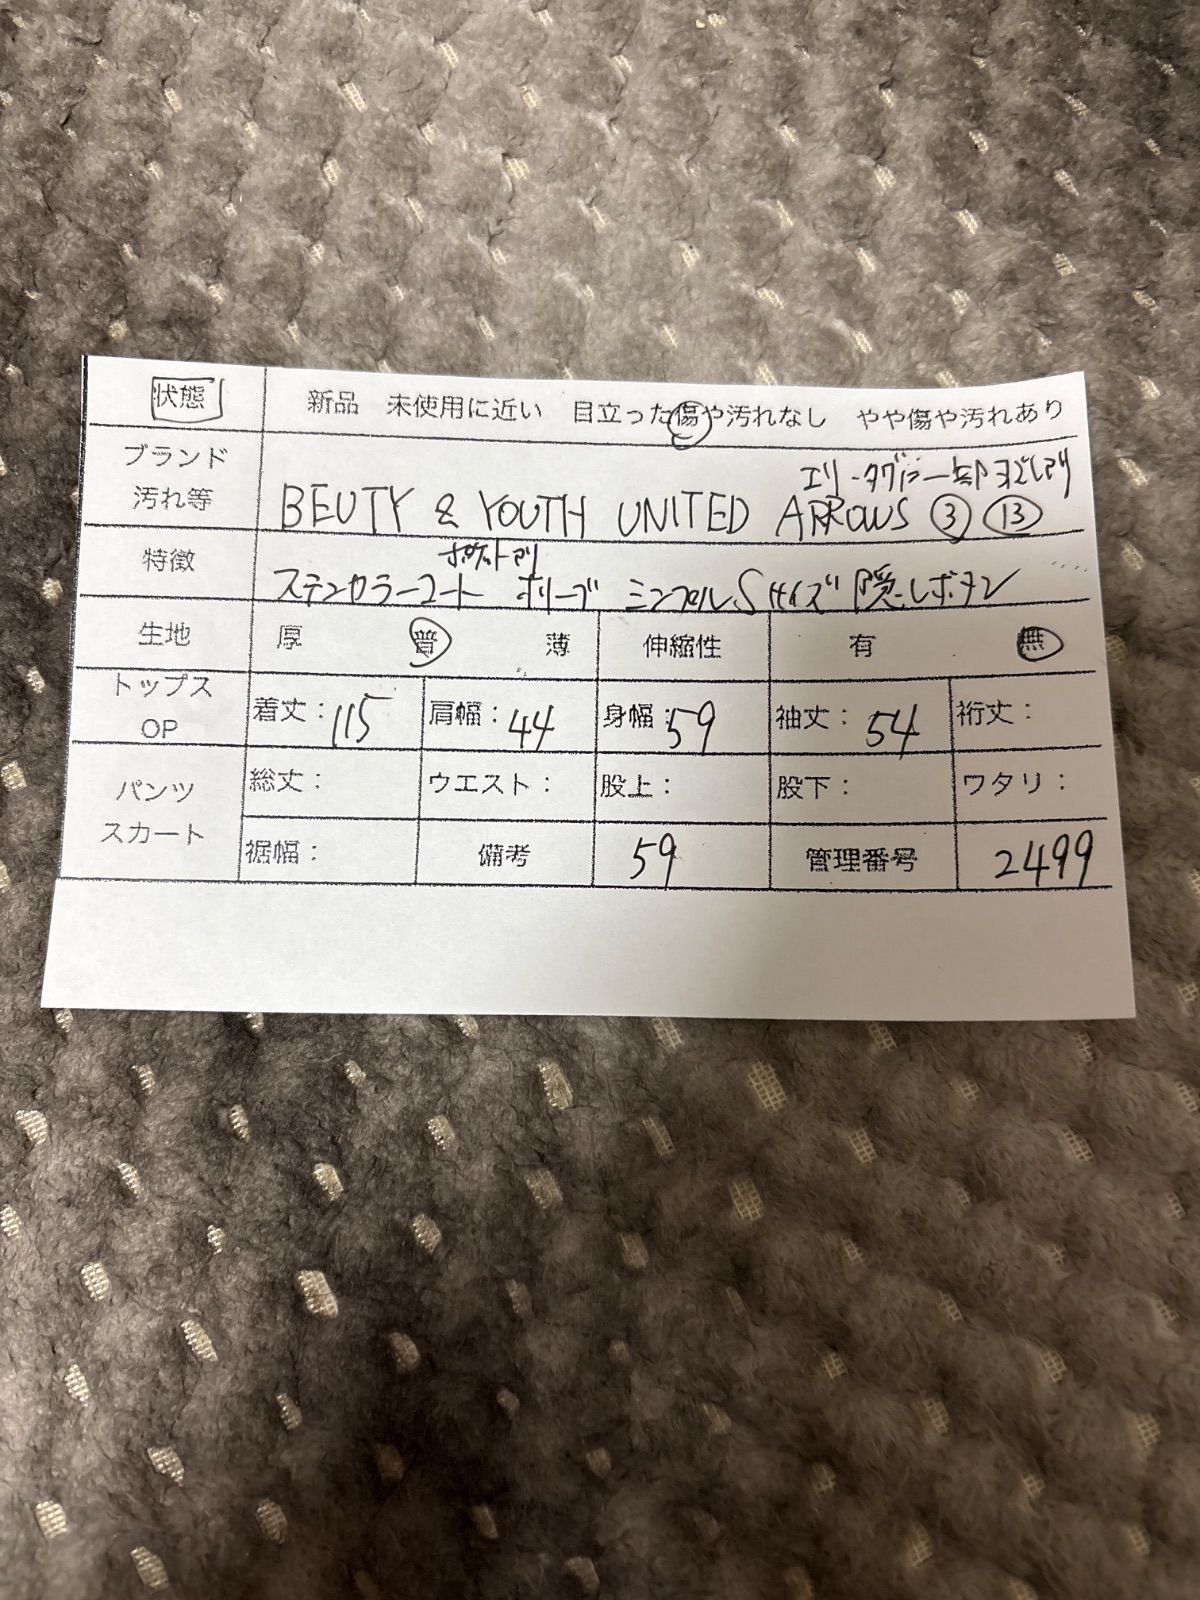 状態 新品 未使用に近い 目立った傷や汚れなし やや傷や汚れあり
ブランド
汚れ等
エリ・タグに一部
BEUTY & YOUTH UNITED ARROWS ③ ⑬
特徴
ポケットアリ
ステンカラーコート オリーブ シンプル Sサイズ 隠しボタン
生地 厚 普 薄 伸縮性 有 無
トップス
OP
着丈：115 肩幅：44 身幅：59 袖丈：54 裄丈：
パンツ
スカート
総丈： ウエスト： 股上： 股下： ワタリ：
裾幅： 備考 59 管理番号 2499